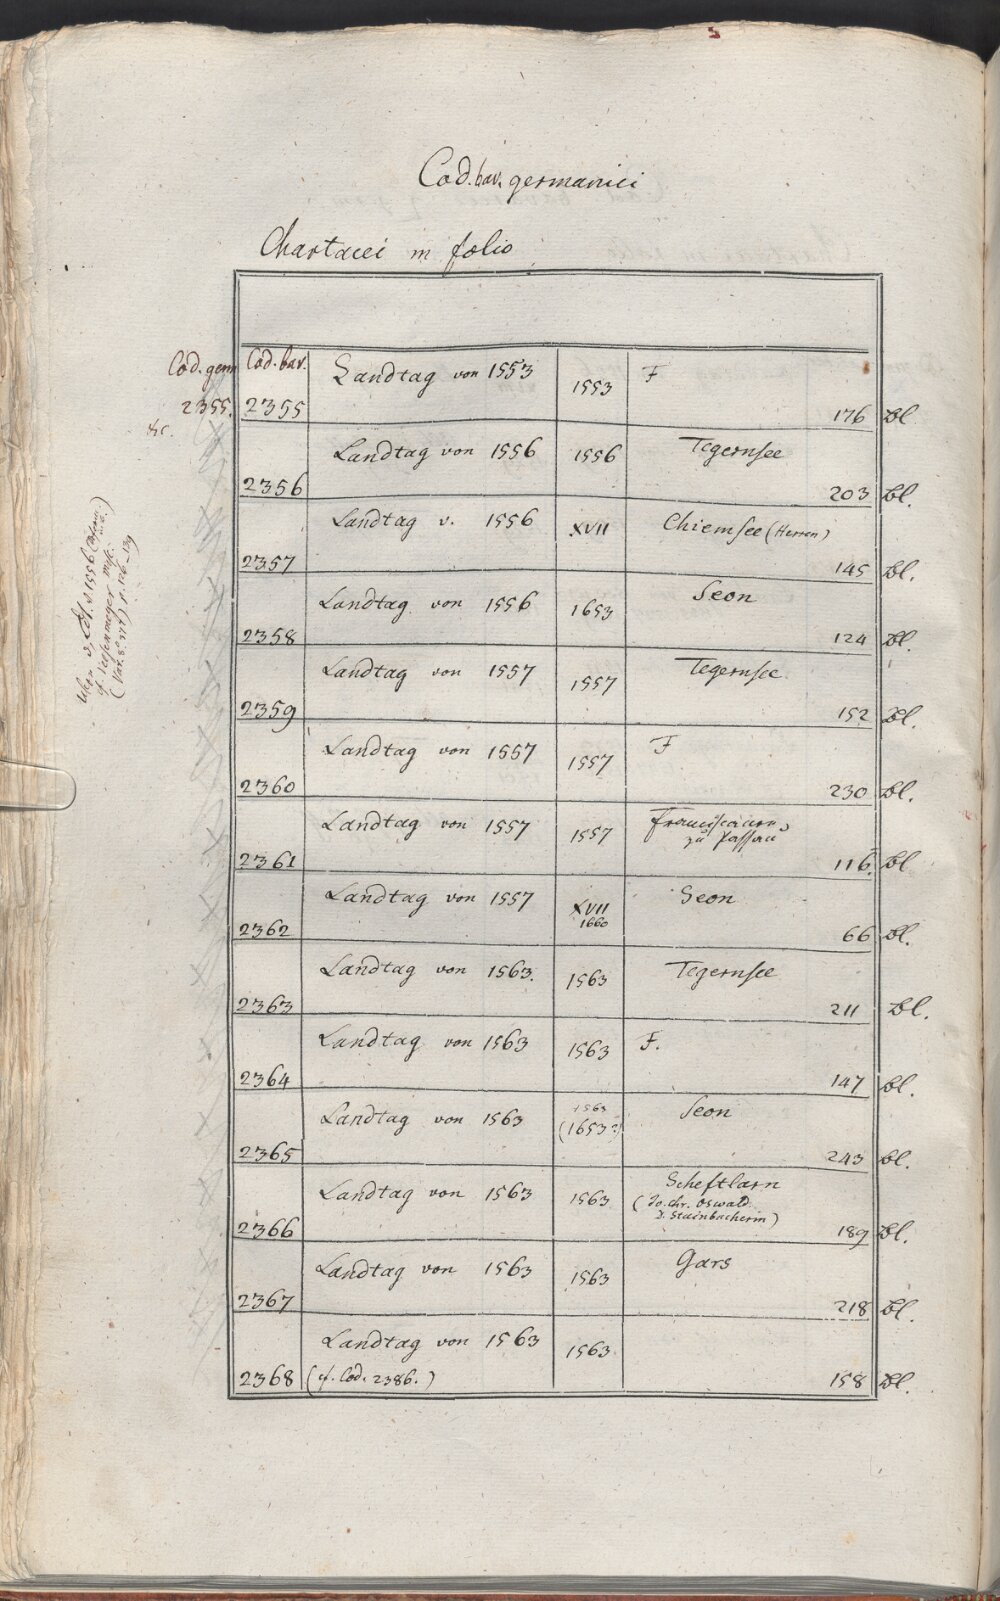 Cod. bav. germanici
Chartacei in folio
Cod. germ Cod. bav.
2355. 2355 Landtag von 1553 1553 F 176 Bl
&c.
2356 Landtag von 1556 1556 Tegernsee 203 Bl.
2357 Landtag v. 1556 XVII Chiemsee (Herren) 145 Bl.
2358 Landtag von 1556 1653 Seon 124 Bl.
2359 Landtag von 1557 1557 Tegernsee 152 Bl.
2360 Landtag von 1557 1557 F 230 Bl.
2361 Landtag von 1557 1557 Franciscaner
zu Passau 116. Bl
2362 Landtag von 1557 XVII Seon 66 Bl.
1660
2363 Landtag von 1563. 1563 Tegernsee 211 Bl.
2364 Landtag von 1563 1563 F. 147 Bl.
2365 Landtag von 1563 1563 Seon 243 Bl.
(1653?)
2366 Landtag von 1563 1563 Scheftlarn 189 Bl.
(Jo. Chr. Oswald
d. Stainbacherin)
2367 Landtag von 1563 1563 Gars 218 Bl.
2368 Landtag von 1563 1563 158 Bl.
(cf. Cod. 2386.)
1556
p. 126-139